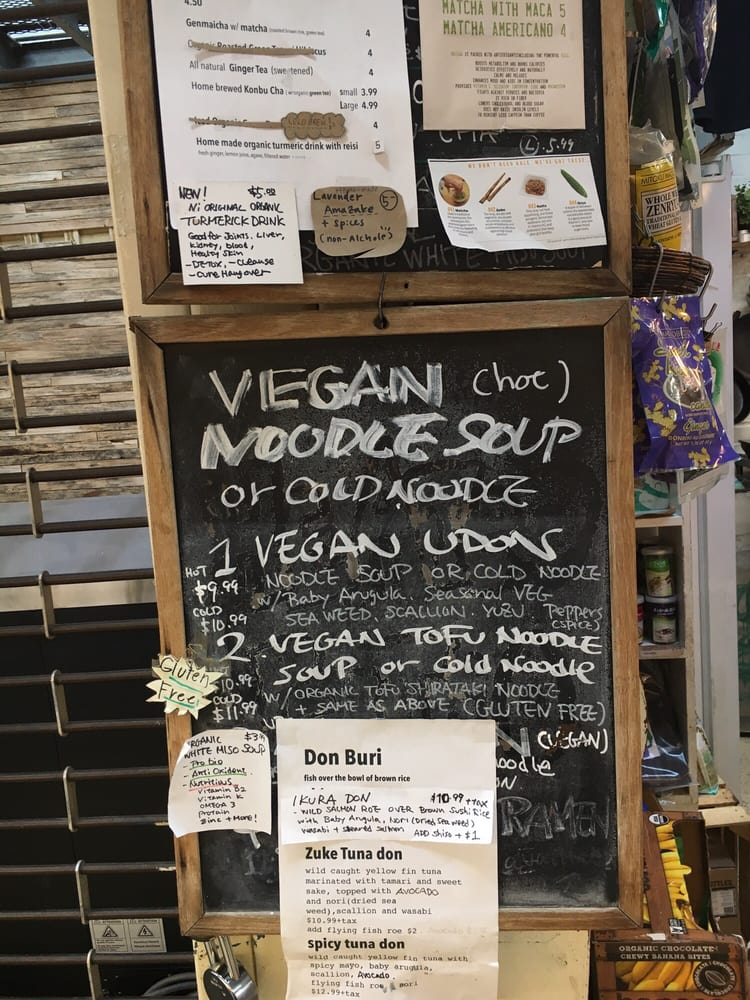 4.50
Genmaicha w/ matcha (roasted brown rice, green tea) 4
4
All natural Ginger Tea (sweetened) 4
Home brewed Konbu Cha (w organic green tea) small 3.99
Large 4.99
4
Home made organic turmeric drink with reisi 5
fresh ginger, lemon juice, agave, filtered water
NEW! $5.00
Ni ORIGINAL ORGANIC
TURMERICK DRINK
Good for Joints, Liver,
kidney, blood,
Healty Skin
- DETOX, - Cleanse
- Cure Hangover
Lavender 5-
Amazake
+ spices
(non-Alchole)
MATCHA WITH MACA 5
MATCHA AMERICANO 4
(L) 5.99
WE DON'T ALSO HALE. WE'VE GOT THESE.
ORGANIC WHITE MISO SOUP
WHOLE W
ZENRY
VEGAN (hot)
NOODLE SOUP
or COLD NOODLE
1 VEGAN UDON
HOT
$9.99
COLD
$10.99
NOODLE SOUP OR COLD NOODLE
w/ Baby Arugula. Seasonal VEG
SEAWEED. SCALLION. YUZU Peppers
(spice)
2 VEGAN TOFU NOODLE
SOUP or Cold Noodle
Gluten
Free
10.99
COLD
$11.99
W/ ORGANIC TOFU SHIRATAKI NOODLE
+ SAME AS ABOVE (GLUTEN FREE)
(VEGAN)
RAMEN
ORGANIC
WHITE MISO SOUP
- Pro bio
- Anti Oxident
- Nutritious
Vitamin B2
Vitamin K
OMEGA 3
Protein
Zinc + More!
Don Buri
fish over the bowl of brown rice
IKURA DON $10.99 +tax
- WILD SALMON ROE OVER Brown Sushi Rice
with Baby Arugula, Nori (Dried Sea weed)
wasabi + steared Salmon ADD Shiso + $1
Zuke Tuna don
wild caught yellow fin tuna
marinated with tamari and sweet
sake, topped with AVOCADO
and nori(dried sea
weed),scallion and wasabi
$10.99+tax
add flying fish roe $2
spicy tuna don
wild caught yellow fin tuna with
spicy mayo, baby arugula,
scallion, Avocado
flying fish roe, nori
$12.99+tax
ORGANIC CHOCOLATE
CHEWY BANANA BITES